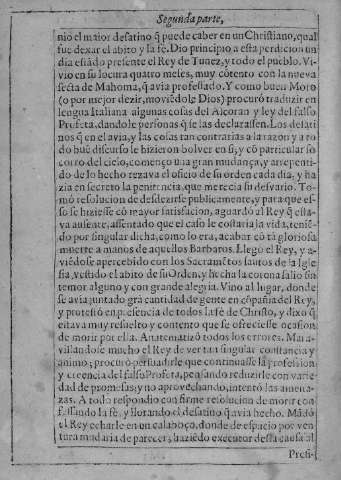 Segunda parte,
nio el maior desatino q̃ puede caber en un Christiano, qual
fue dexar el abito y la fè. Dio principio a esta perdicion un
dia estãdo presente el Rey de Tunez, y todo el pueblo. Vi-
vio en su locura quatro meses, muy cõtento con la nueva
secta de Mahoma, q̃ avia professado. Y como buen Moro
(o por mejor dezir, moviẽdole Dios) procurò traduzir en
lengua Italiana algunas cosas del Alcoran y ley del falso
Profeta, dandole personas q̃ se las declarassen. Los desati-
nos q̃ en el avia, y las cosas tan contrarias a la razon y a to-
do buẽ discurso le hizieron bolver en si; y cõ particular so-
corro del cielo, començò una gran mudança, y arrepenti-
do de lo hecho rezava el oficio de su orden cada dia, y ha
zia en secreto la penitencia, que merecia su desvario. To-
mò resolucion de desdezirse publicamente, y para que es-
so se hiziesse cõ mayor satisfacion, aguardò al Rey q̃ esta-
va ausente, assentado que el caso le costaria la vida, teniẽ-
do por singular dicha, como lo era, acabar cõ tã gloriosa
muerte a manos de aquellos Barbaros. Llegò el Rey, y a-
viẽdose apercebido con los Sacramẽtos santos de la Igle
sia, vestido el abito de su Orden, y hecha la corona salio sin
temor alguno y con grande alegria. Vino al lugar, donde
se avia juntado grã cantidad de gente en cõpañia del Rey,
y protestò en presencia de todos la fè de Christo, y dixo q̃
estava muy resuelto y contento que se ofreciesse ocasion
de morir por ella. Anatematizò todos los errores. Mara-
villandose mucho el Rey de ver tan singular constancia y
animo; procurò persuadirle que continuasse la profession
y creencia del falso Profeta, pensando reduzirle con varie-
dad de promesas; y no aprovechando, intentò las amena-
zas. A todo respondio con firme resolucion de morir con-
fessando la fè, y llorando el desatino q̃ avia hecho. Mãdò
el Rey echarle en un calaboço, donde de espacio por ven-
tura mudaria de parecer, haziẽdo executor desta causa al
Presi-